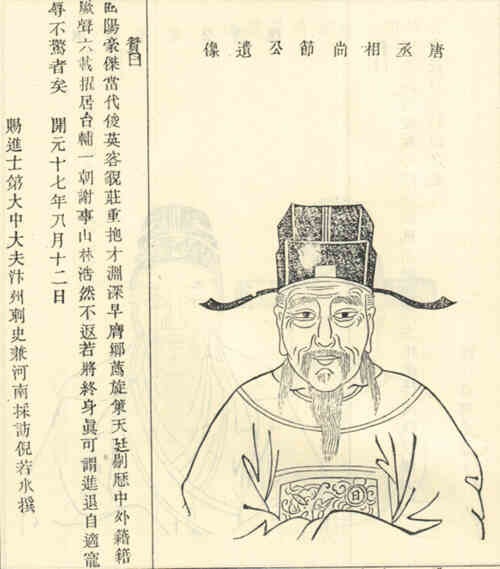 唐丞相尚節公遺像
贊曰
陽豪傑當代俊英容貌莊重抱才淵深早膺鄉薦旋策天廷剔歷中外籍籍
厥聲六載擢居台輔一朝謝事山林浩然不返若將終身眞可謂進退自適寵
辱不驚者矣 開元十七年八月十二日
賜進士第大中大夫汴州刺史兼河南採訪倪若水撰